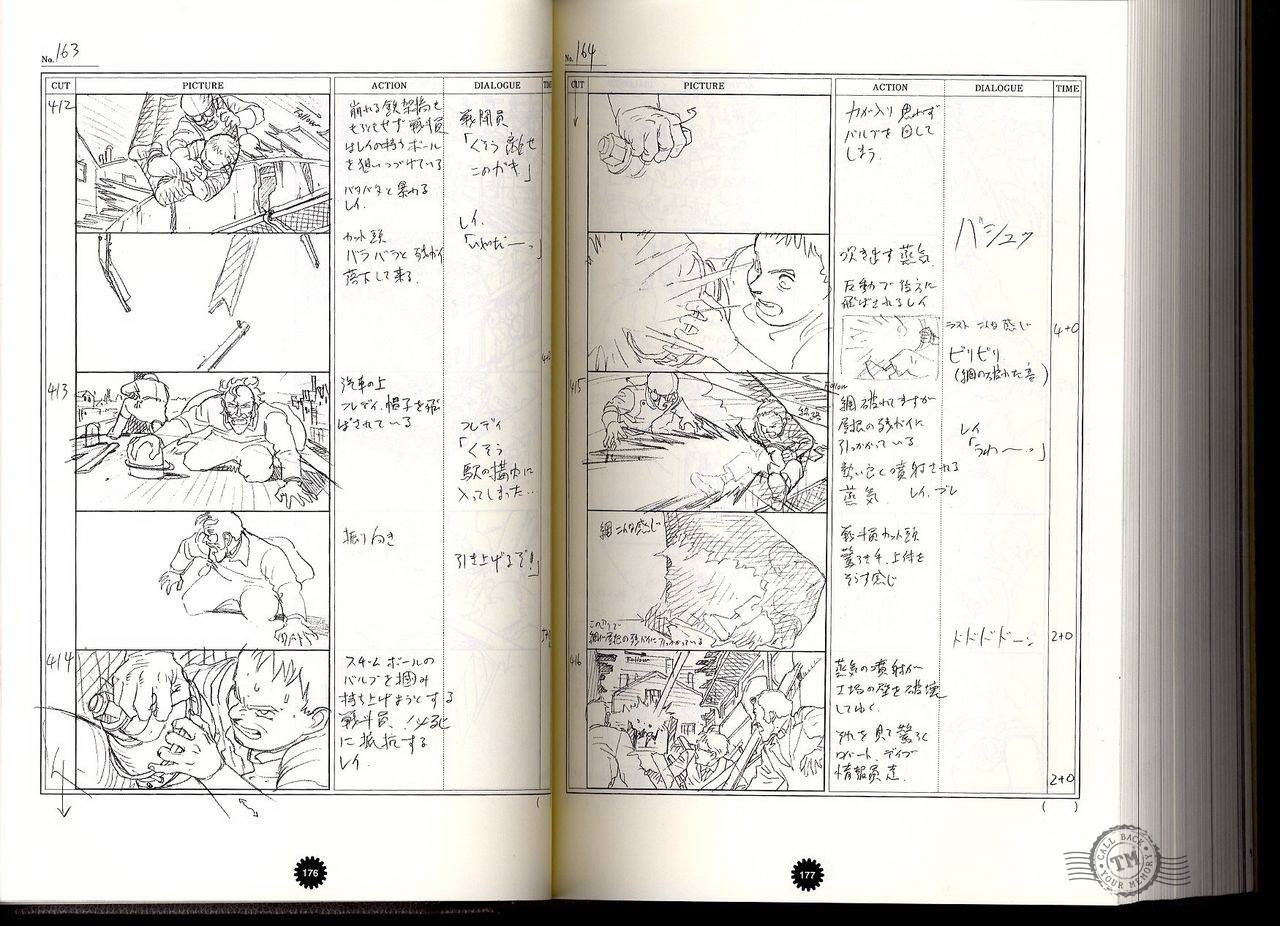 No. 163
CUT PICTURE ACTION DIALOGUE
412
Follow
崩れる鉄架橋も
ものともせず戦斗員
はレイの持つボール
を狙いつづけている
バタバタと暴れる
レイ.
戦闘員
「くそう 離せ
このガキ」
レイ.
「いやだーっ」
カット頭
バラバラと残ガイ
落下して来る.
413
汽車の上
フレディ、帽子を飛
ばされている
フレディ
「くそう
駅の構内に
入ってしまった‥
振り向き
引き上げるぞ!」
414
スチームボールの
バルブを掴み
持ち上げようとする
戦斗員、必死
に抵抗する
レイ.
176
No. 164
CUT PICTURE ACTION DIALOGUE TIME
力が入り思わず
バルブを回して
しまう.
バシュッ
吹き出す蒸気
反動で後ろに
飛ばされるレイ
ラスト こんな感じ
4+0
ビリビリ
(網の破れた音)
415
Follow
線路
網破れてますが
屋根の残ガイに
引っかかっている
勢い良く噴射される
蒸気 レイ、ブレ
レイ
「うわ〜っ」
網こんな感じ
戦斗員カット頭
驚き手、上体を
そらす感じ
網が屋根の残ガイに引っかかっている
ドドドドーン
2+0
416
Follow
蒸気の噴射が
工場の壁を破壊
してゆく.
それを見て驚く
ロバート、デイブ
情報員達.
2+0
( )
177
CALL BACK
TM
YOUR MEMORY